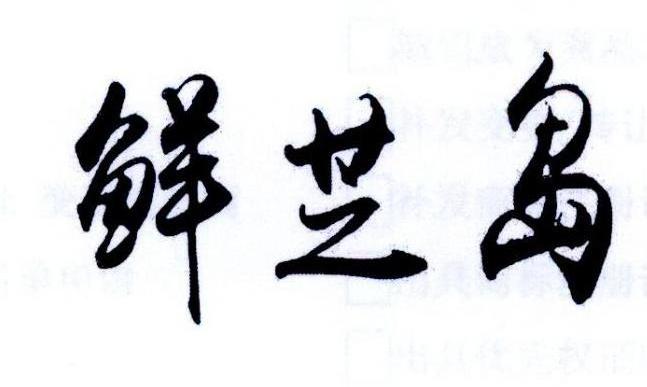 鲜芝岛